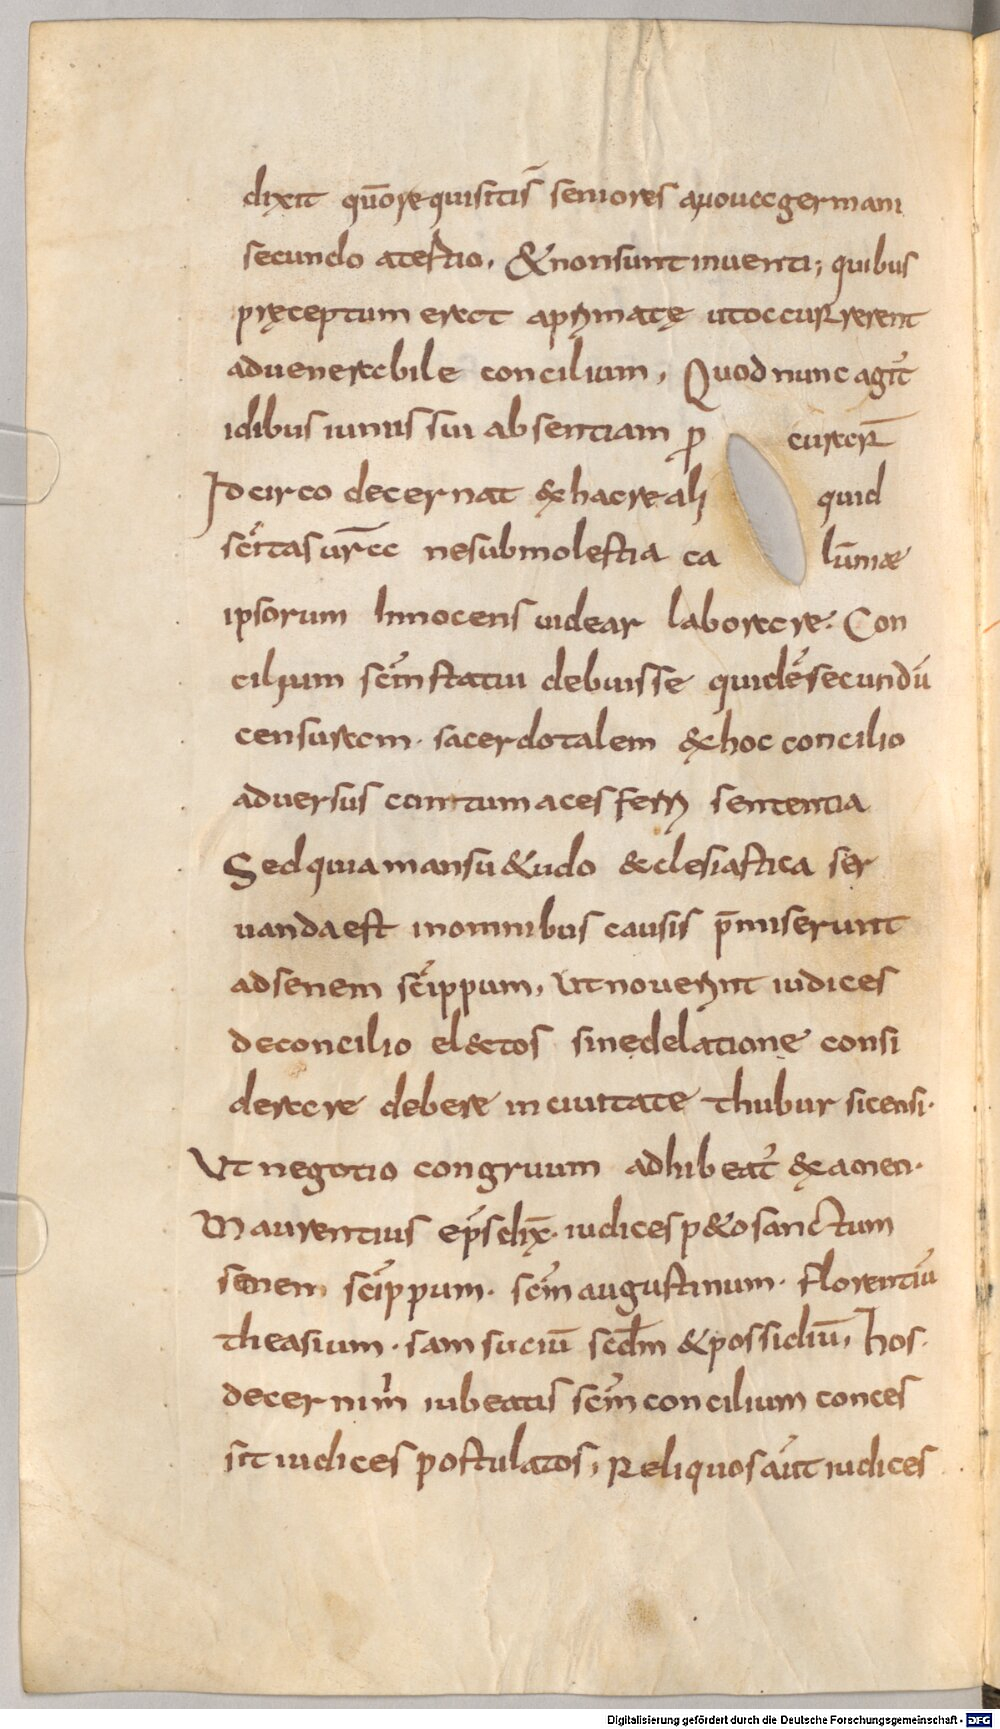 dixit qūo requisitis̄ seniores a nouagermani
secundo atestio, & non sunt inuenti; quibus
pręceptum erat a primatę ut occurrerent
ad uenerabile concilium, Quod nunc agit̄
idibus iunus sui absentiam p curar̄
Id circo decernat & hac re ali quid
sc̄itas ur̄a ne sub molestia ca lūniae
ipsorum Innocens uidear laborare. Con
cilium sc̄m statui debuisse quidē secundū
censuram. sacerdotalem & hoc concilio
aduersus contumaces ferri sententia
Sed quia mansu&udo &clesiastica ser
uanda est in omnibus causis p̄miserunt
ad senem sc̄ippum, Ut nouerint iudices
de concilio el&ctos sine delatione consi
derare debere in ciuitate thubursicensi.
Ut negotio congruum adhibeat̄ &xamen.
Maurentius ep̄s dix̄. iudices p&o sanctum
senem sc̄ippum. sc̄m augustinum. florentiū
theasium. samsuciū sec̄dm & possidiū, hos.
decernim̄ iubeatis sc̄m concilium conces
sit iudices postulatos, Reliquos aūt iudices
Digitalisierung gefördert durch die Deutsche Forschungsgemeinschaft - DFG